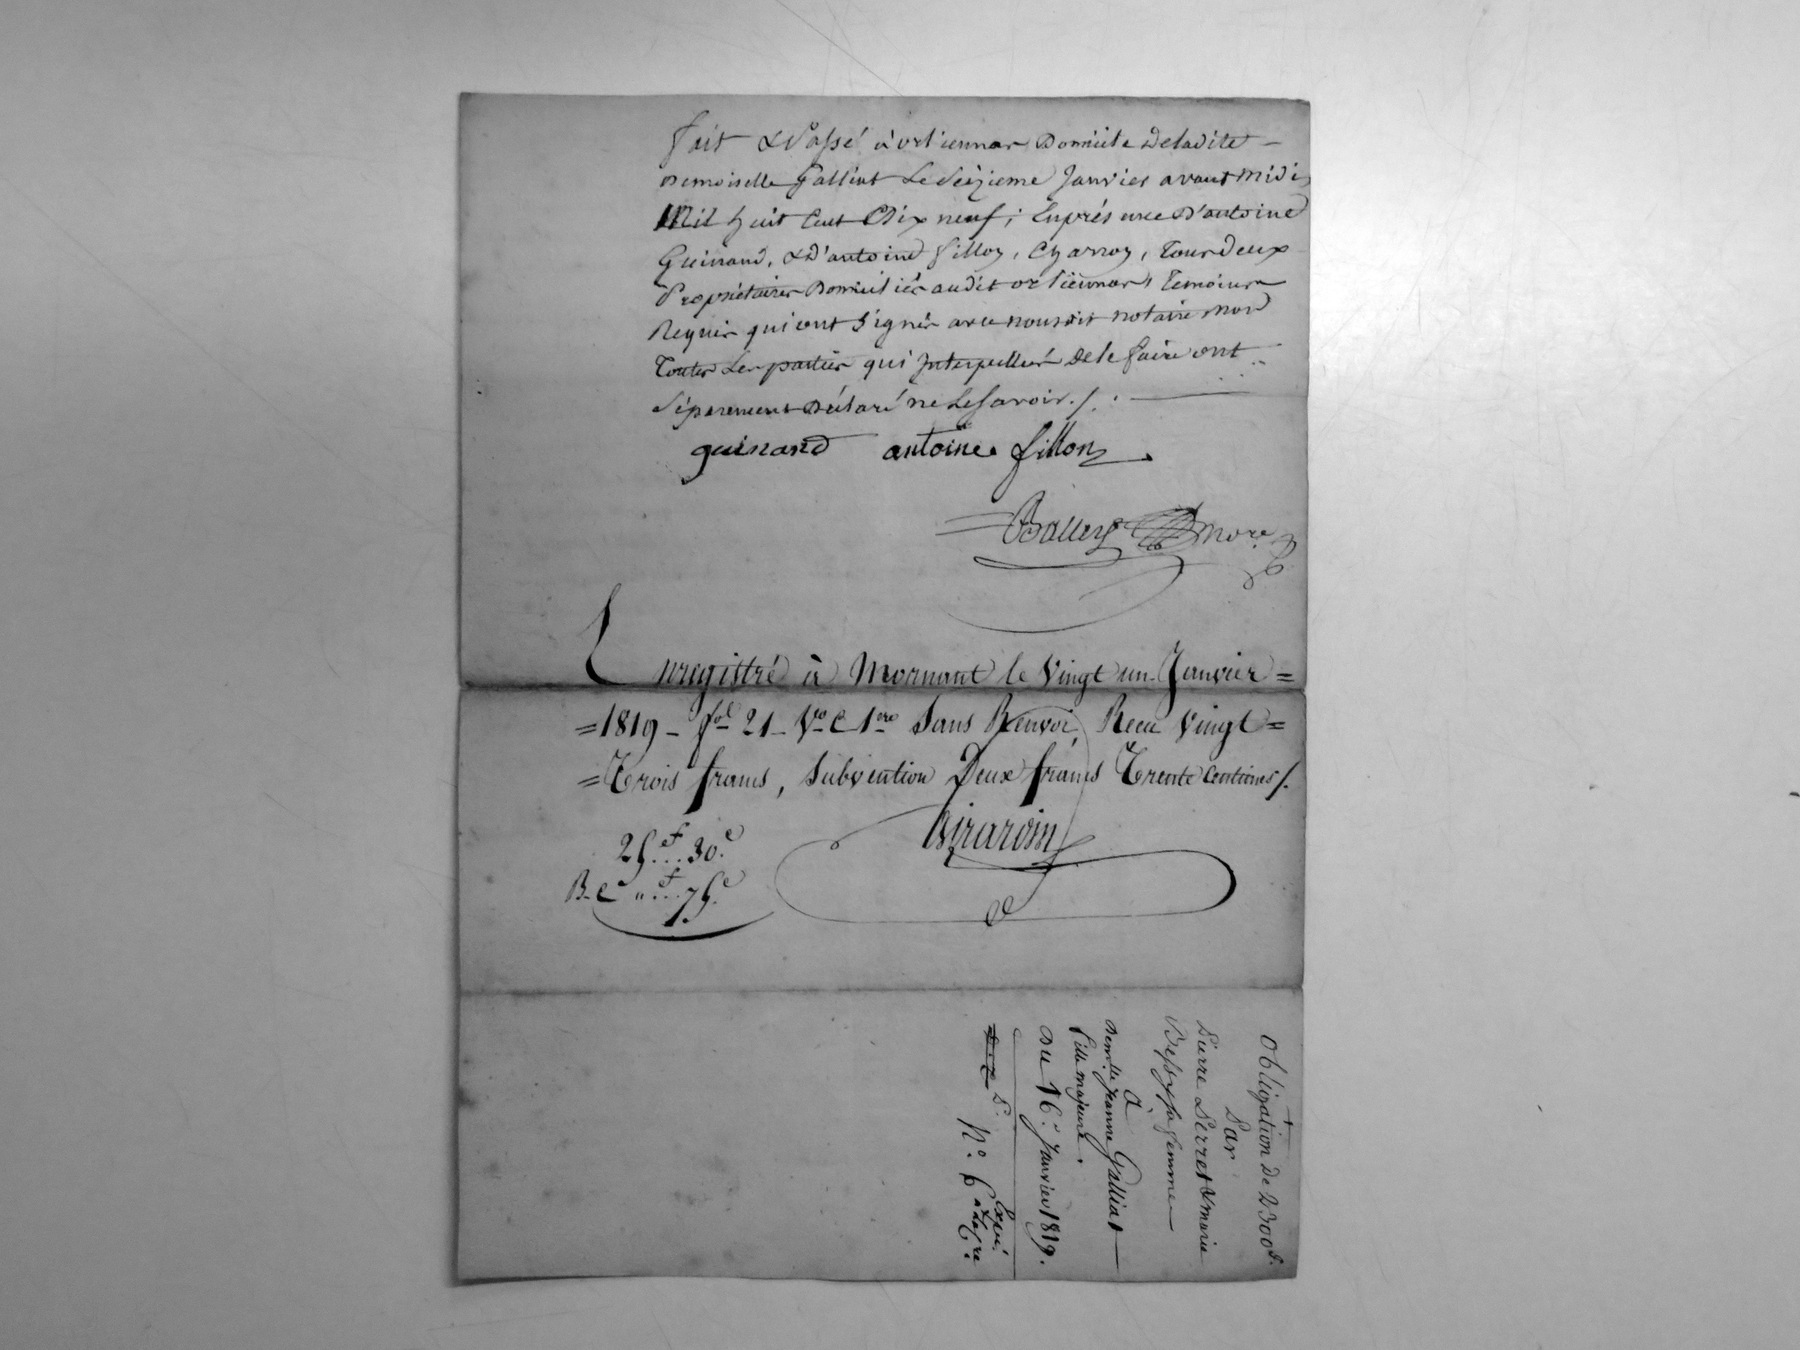 fait & passé à orliennas Domicile De ladite
Demoiselle Galliat Le Seizieme Janvier avant midi
Mil huit Cent Dix neuf ; En présence D'antoine
Guinand, & D'antoine fillon, Charron, Tous Deux
Propriétaires Domiciliés audit orliennas, Temoins
Requis qui ont Signés avec nous dit notaire, non
Toutes Les parties qui Interpellées De le faire ont
Séparement Déclaré ne Le Savoir ./.
guinand antoine fillon
Enregistré à Mornant le Vingt un Janvier =
=1819 - fol 21 Vo C 1ere Sans Renvoi, Recu Vingt =
=Trois francs, Subvention Deux francs Trente Centimes /.
Girardin
25f...30c
B-C " f...75c
Obligation De 2300f.
Par
Pierre Perret & marie
Bessy sa femme
A
Demlle Jeanne Galliat
fille majeure.
Du 16e. Janvier 1819.
No. 6